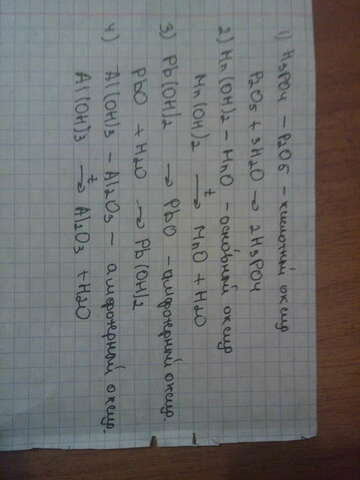 1) H3PO4 – P2O5 – кислотный оксид
P2O5 + 3H2O → 2H3PO4
2) Mn(OH)2 – MnO – основный оксид
Mn(OH)2 t→ MnO + H2O
3) Pb(OH)2 → PbO – амфотерный оксид.
PbO + H2O → Pb(OH)2
4) Al(OH)3 – Al2O3 – амфотерный оксид.
Al(OH)3 t→ Al2O3 + H2O